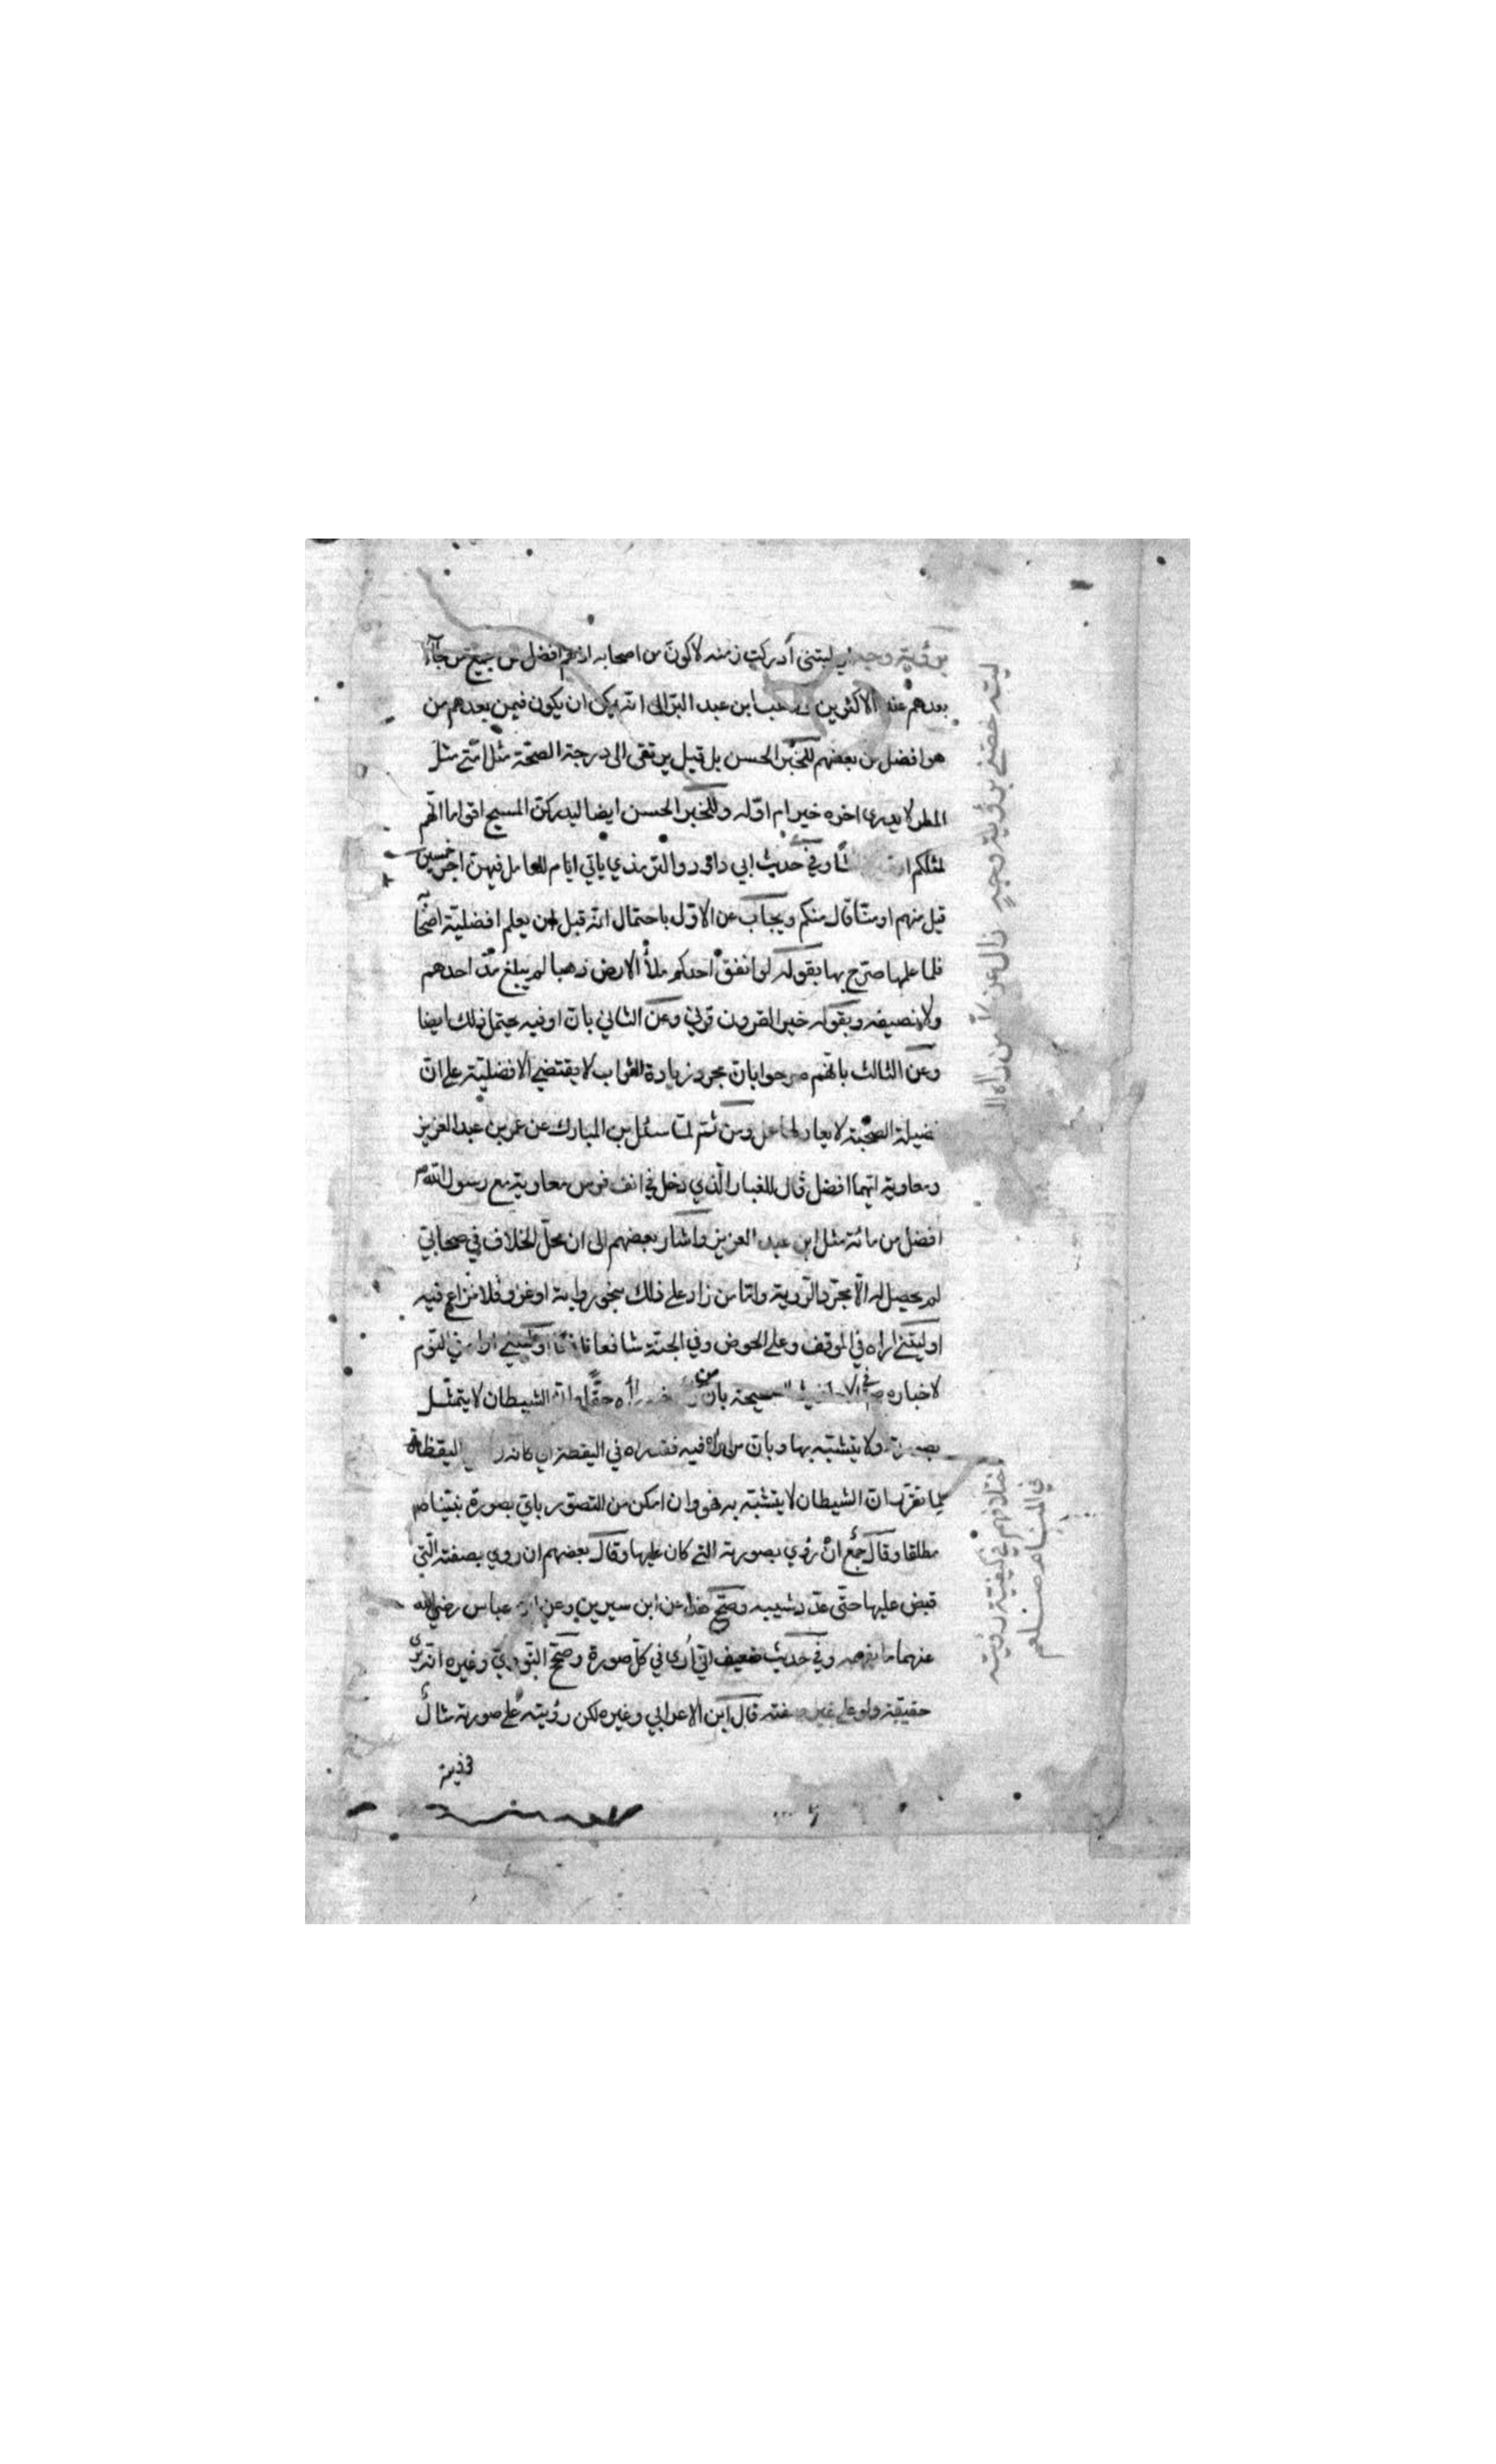 برؤية وجه اي ليتني أدركت زمنه لاكون من اصحابه اذ هم افضل من جميع من جاء
بعدهم عند الاكثرين وذهب ابن عبد البر الى انه يمكن ان يكون فيمن بعدهم من
هو افضل من بعضهم للخبر الحسن بل قيل يرتقى الى درجة الصحة مثل امتي مثل
المطر لا يدرى اخره خير ام اوله وللخبر الحسن ايضا ليدركن المسيح اقواما انهم
لمثلكم او وفي حديث ابي داود والترمذي ياتي ايام للعامل فيهن اجر خمسين
قيل منهم او منا قال منكم ويجاب عن الاول باحتمال انه قبل ان يعلم افضلية اصحا
فلما علمها صرح بها بقوله لو انفق احدكم ملأ الارض ذهبا لم يبلغ مد احدهم
ولا نصيفه وبقوله خير القرون قرني وعن الثاني بان او فيه يحتمل ذلك ايضا
وعن الثالث بانهم صرحوا بان مجرد زيادة الثواب لا يقتضي الافضلية على ان
فضيلة الصحبة لا يعادلها عمل ومن ثم لما سئل بن المبارك عن عمر بن عبد العزيز
ومعاوية ايهما افضل قال للغبار الذي دخل في انف فرس معاوية مع رسول الله
افضل من مائة مثل ابن عبد العزيز واشار بعضهم الى ان محل الخلاف في صحابي
لم يحصل له الا مجرد الرؤية واما من زاد على ذلك بنحو رواية او غزو فلا نزاع فيه
او ليتني اراه في الموقف وعلى الحوض وفي الجنة شافعا او ليتني اراه في النوم
لاخباره في الاحاديث الصحيحة بان من راه حقا وان الشيطان لا يتمثل
بصورته ولا يتشبه بها وبان من راه فيه فسيراه في اليقظة اي كانه اليقظة
لما تقرر ان الشيطان لا يتشبه به فهو وان امكن من التصور باي بصورة نبينا ص
مطلقا وقال جمع ان رؤي بصورته التي كان عليها وقال بعضهم ان روي بصفته التي
قبض عليها حتى عدد شيبه وصح هذا عن ابن سيرين وعن ابن عباس رضي الله
عنهما وفي حديث ضعيف اني أرى في كل صورة وصحح النووي وغيره انه يرى
حقيقة ولو على غير صفته قال ابن الاعرابي وغيره لكن رؤيته على صورته
ليته خصني برؤية وجه زال عن كل من راه
اختلافهم في كيفية رؤيته
في المنام صلعم